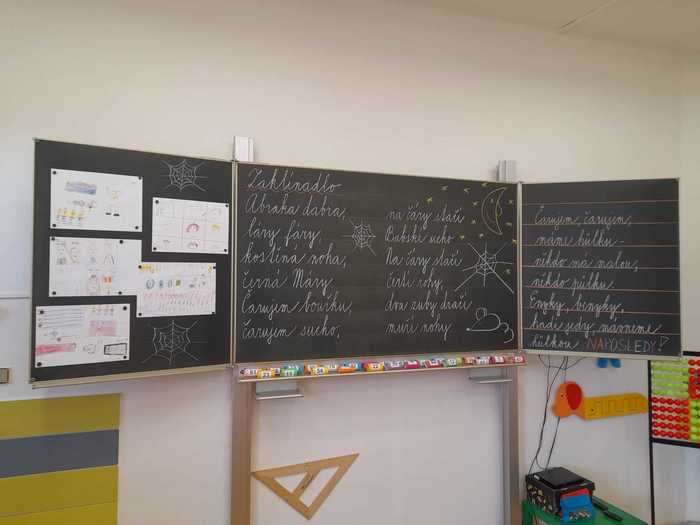 Zaklínadlo
Abraka dabra,
láry fáry,
kostina noha,
černá Máry.
Čarujem bouřku,
čarujem sucho,
na čáry stačí
Babské ucho.
Na čáry stačí
čertí rohy,
dva zuby dračí
muří nohy.
Čarujem, čarujem,
máme hůlku -
nikdo má celou,
někdo půlku.
Enyky, benyky,
hadí jedy, mávneme
hůlkou NAPOSLEDY!